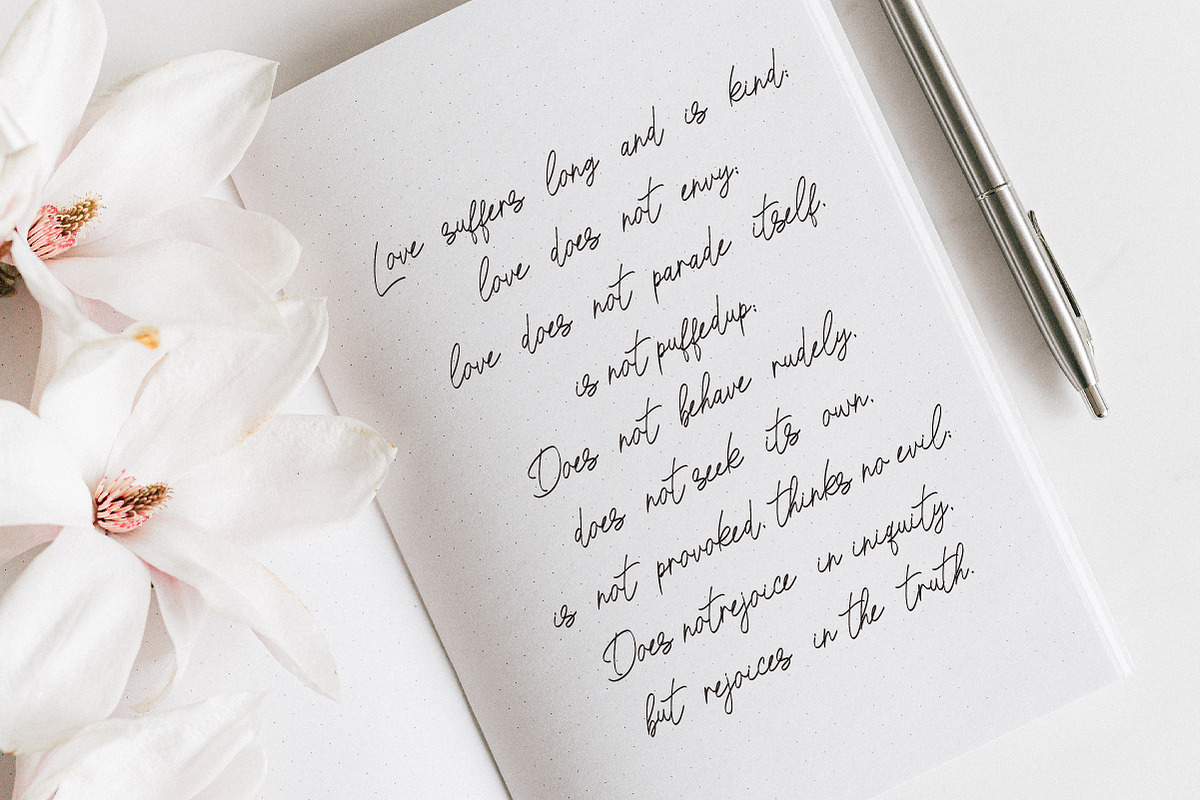 Love suffers long and is kind;
love does not envy;
love does not parade itself.
is not puffedup;
Does not behave rudely.
does not seek its own.
is not provoked. thinks no evil;
Does notrejoice in iniquity.
but rejoices in the truth.